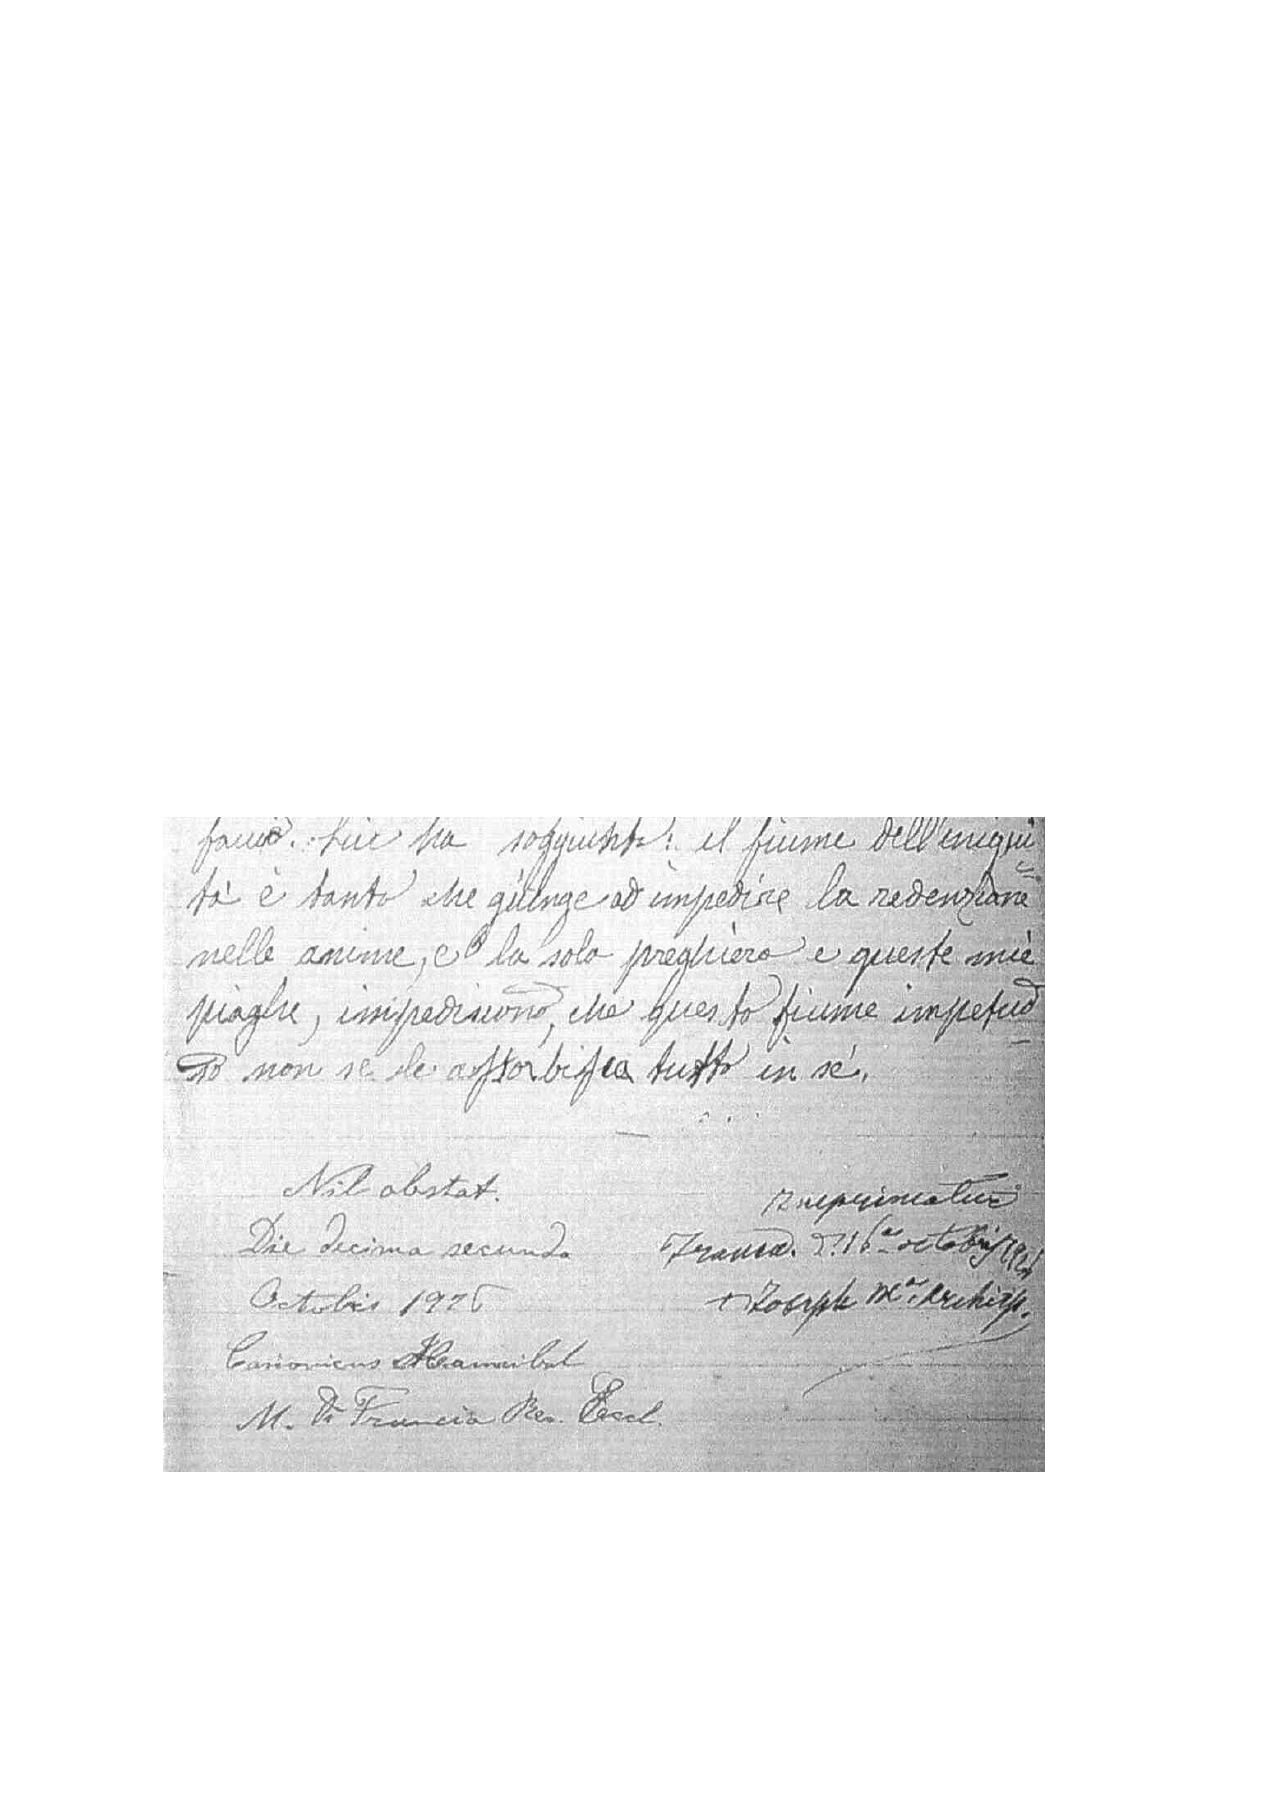 ha soggiunto: il fiume dell'iniqui
tà è tanto che giunge ad impedire la redenzione
nelle anime, e la sola preghiera e queste mie
piaghe, impediscono, che questo fiume impetuo
so non se le assorbisca tutto in sé.
Nil obstat.
Die decima secunda
Octobris 1926
Canonicus Hannibal
M. Di Francia Rev. Eccl.
Imprimatur
16 octobris 1926
+ Joseph M.a Archiep.